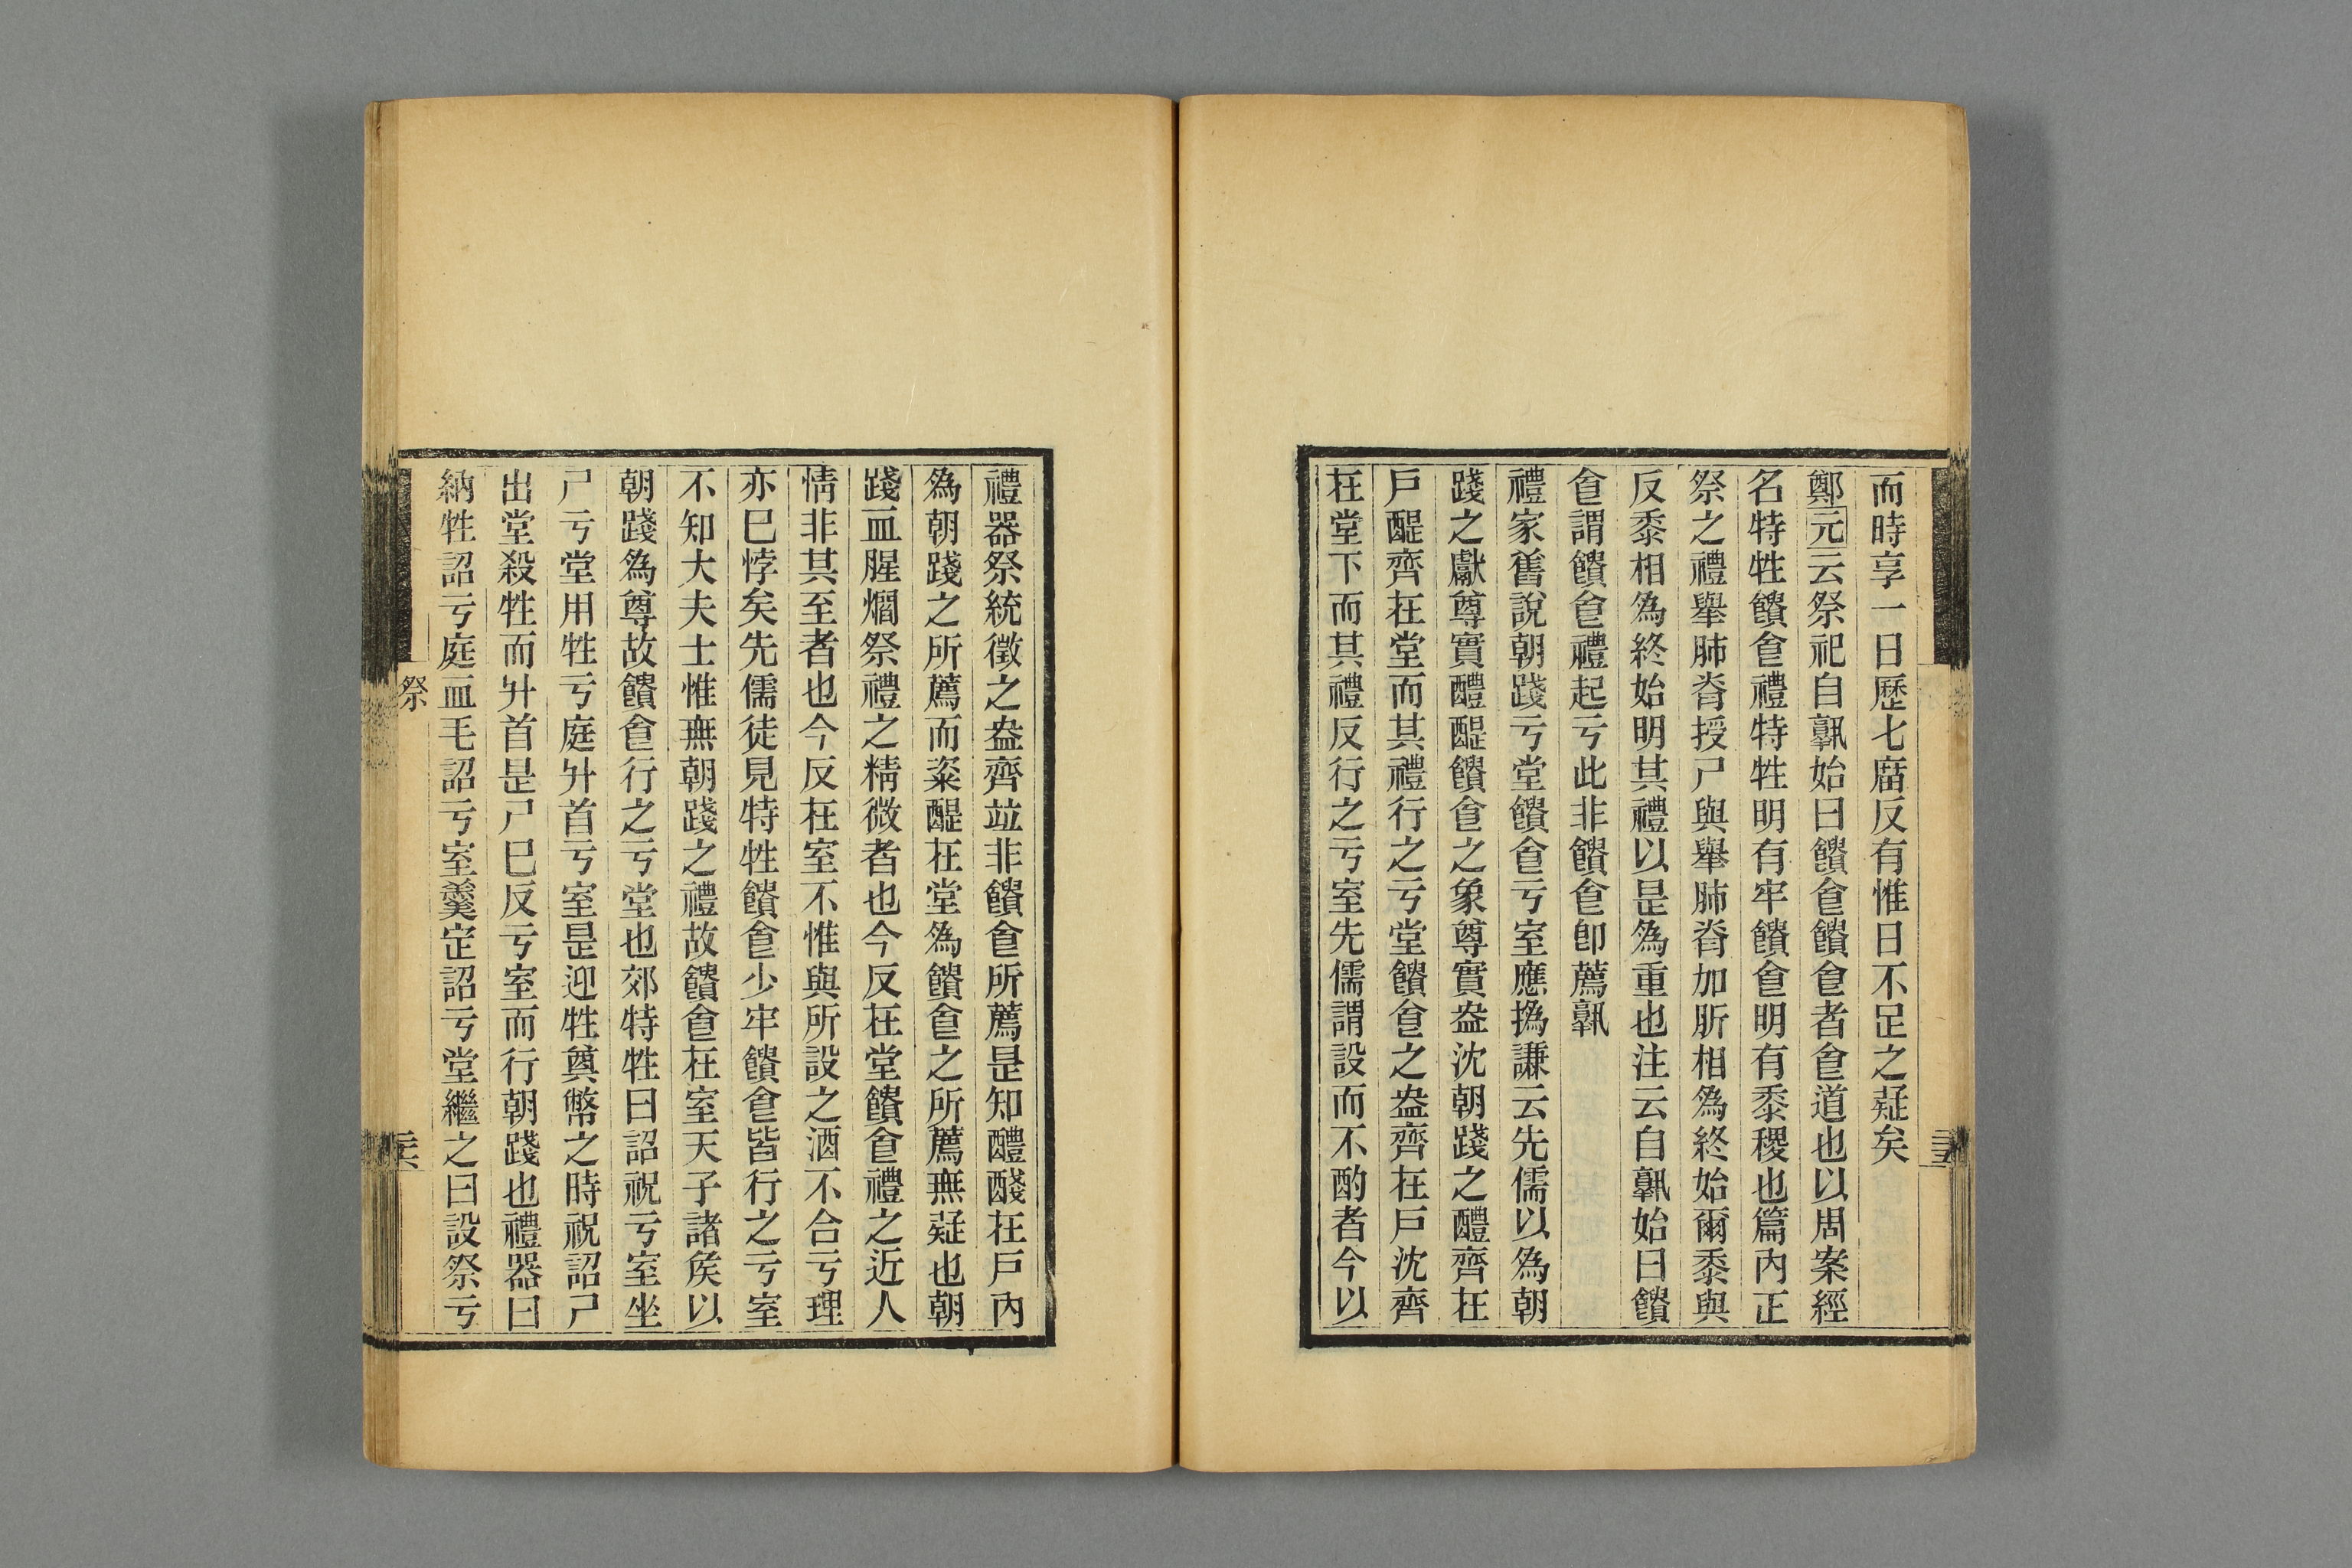 而時享一日歷七庿反有惟日不足之疑矣
鄭元云祭祀自孰始曰饋食饋食者食道也以周案經
名特牲饋食禮特牲明有牢饋食明有黍稷也篇内正
祭之禮舉肺脊授尸與舉肺脊加肵相爲終始爾黍與
反黍相爲終始明其禮以是爲重也注云自孰始曰饋
食謂饋食禮起亏此非饋食卽薦孰
禮家舊說朝踐亏堂饋食亏室應撝謙云先儒以爲朝
踐之獻尊實醴醍饋食之象尊實盎沈朝踐之醴齊在
戶醍齊在堂而其禮行之亏堂饋食之盎齊在戶沈齊
在堂下而其禮反行之亏室先儒謂設而不酌者今以
禮器祭統徵之盎齊竝非饋食所薦是知醴醆在戶内
爲朝踐之所薦而粢醍在堂爲饋食之所薦無疑也朝
踐血腥爓祭禮之精微者也今反在堂饋食禮之近人
情非其至者也今反在室不惟與所設之酒不合亏理
亦巳悖矣先儒徒見特牲饋食少牢饋食皆行之亏室
不知大夫士惟無朝踐之禮故饋食在室天子諸矦以
朝踐爲尊故饋食行之亏堂也郊特牲曰詔祝亏室坐
尸亏堂用牲亏庭升首亏室是迎牲奠幣之時祝詔尸
出堂殺牲而升首是尸巳反亏室而行朝踐也禮器曰
納牲詔亏庭血毛詔亏室羹定詔亏堂繼之曰設祭亏
祭